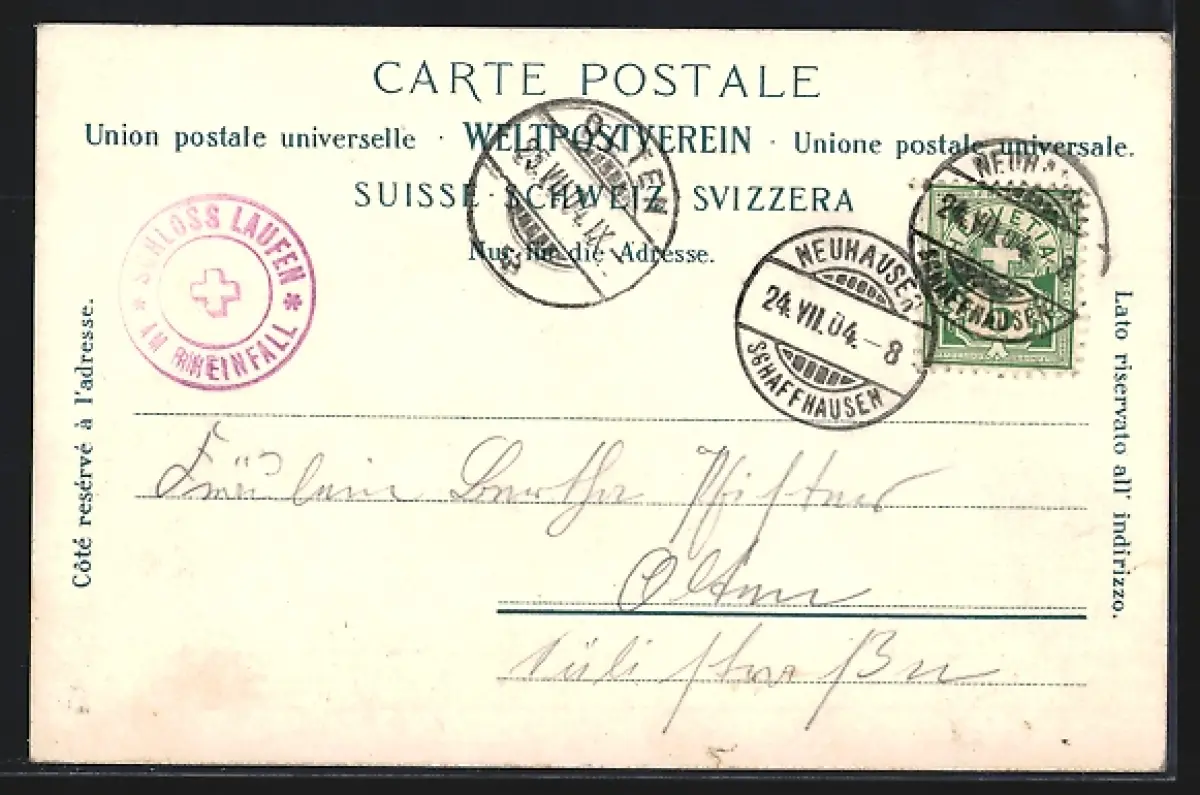 CARTE POSTALE
Union postale universelle · WELTPOSTVEREIN · Unione postale universale.
SUISSE · SCHWEIZ · SVIZZERA
Nur für die Adresse.
OLTEN
25.VII.04.IX
SCHLOSS LAUFEN
* AM RHEINFALL *
NEUHAUSEN
24.VII.04.–8
SCHAFFHAUSEN
NEUHAUSEN
24.VII.04.–8
SCHAFFHAUSEN
HELVETIA
Côté resérvé à l'adresse.
Lato riservato all' indirizzo.
Fräulein Bertha Pfister
Olten